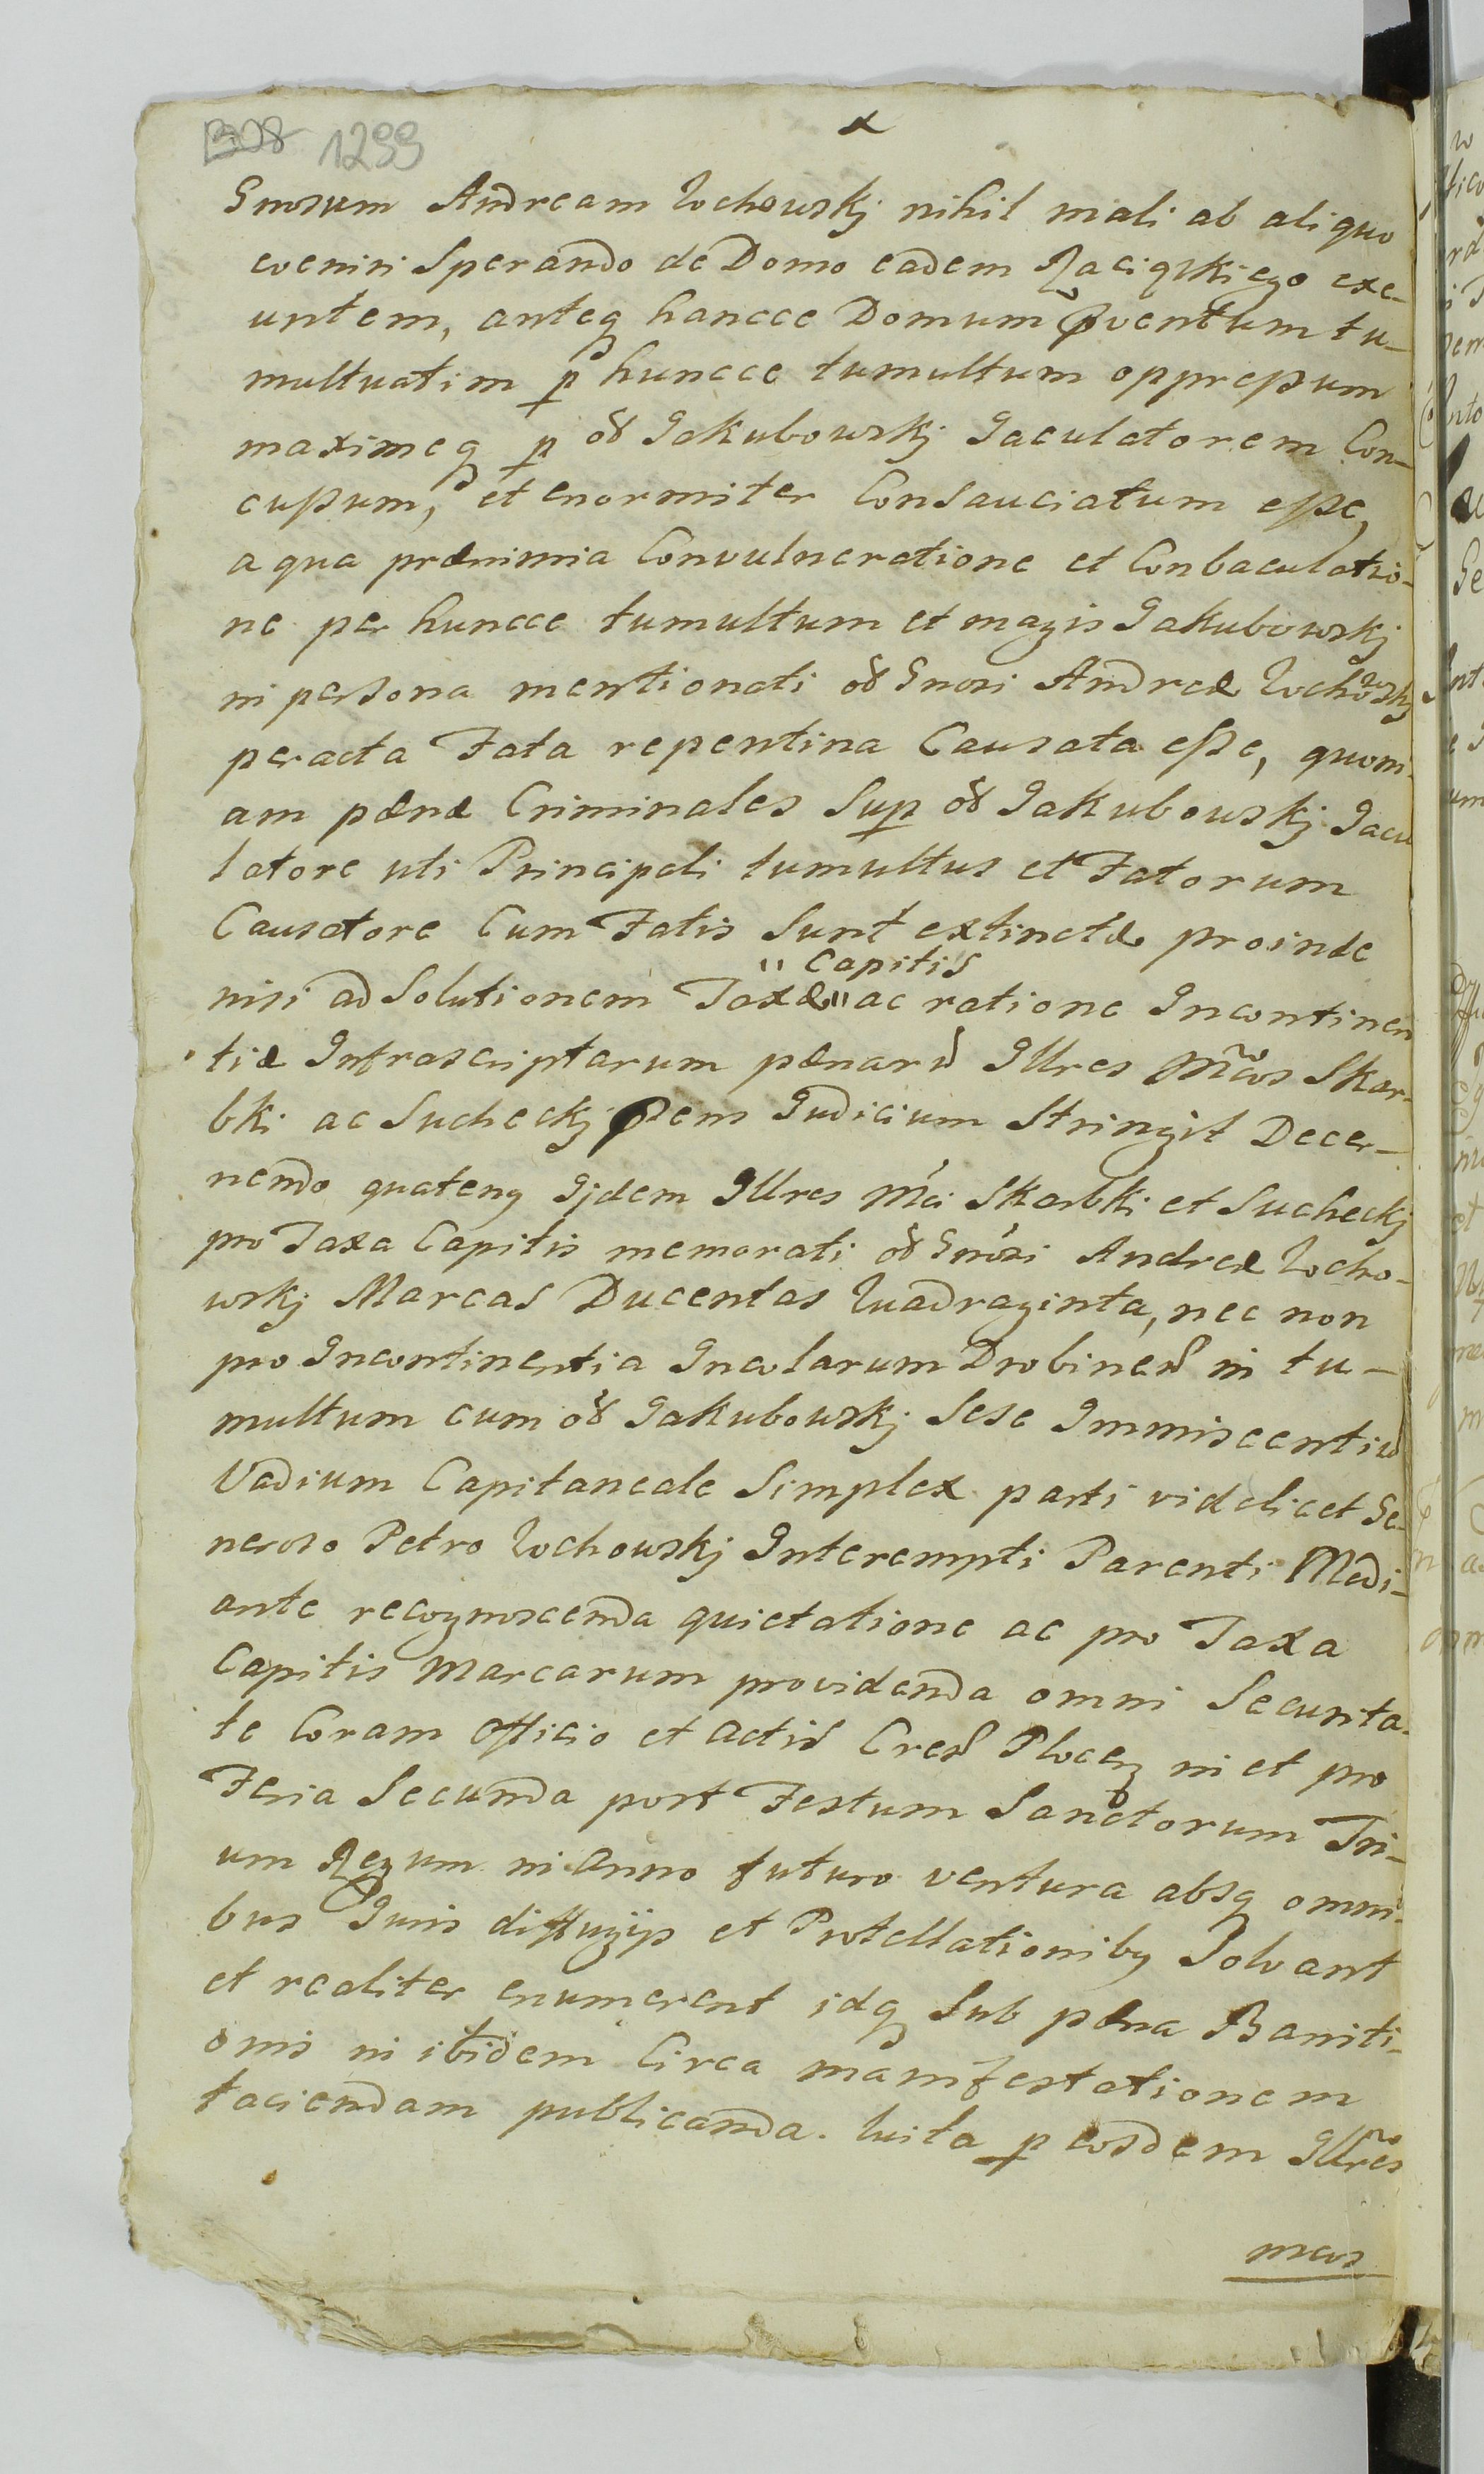 1299
Gnosum Andream Lochowskj nihil mali ab aliquo
eveniri Sperando de Domo eadem Raciąskiego exe-
untem, anteq hancce Domum pventum tu-
multuatim p huncce tumultum oppressum
maximeq p oð Jakubowskj Jaculatorem Con-
cussum, et enormiter Consauciatum esse,
a qua prænimia Convulneratione et Conbaculatio-
ne per huncce tumultum et magis Jakubowskj
in persona mentionati oð Gnosi Andreæ Lochowskj
peracta Fata repentina Causata esse, quoni-
am pænæ Criminales Sup oð Jakubowskj Jacu
latore uti Principali tumultus et Fatorum
Causatore Cum Fatis Sunt extinctæ proinde
" Capitis
nisi ad Solutionem Taxæ " ac ratione Incontinen
tiæ Infrascriptarum pænarū Illres Mcos Skar-
bki ac Sucheckj pñs Judicium Stringit Decer-
nendo quateng Ijdem Illres Mci Skarbki et Sucheckj
pro Taxa Capitis memorati oð Gnosi Andreæ Locho-
wskj Marcas Ducentas Quadraginta, nec non
pro Incontinentia Incolarum Drobinen in tu-
multum cum oð Jakubowskj Sese Immiscentiū
Vadium Capitaneale Simplex parti videlicet Ge-
neroso Petro Lochowskj Interempti Parenti Medi-
ante recognoscenda quietatione ac pro Taxa
Capitis Marcarum providenda omni Securita-
te Coram Officio et Actis Cren Plocen in et pro
Feria Secunda post Festum Sanctorum Tri-
um Regum in Anno futuro ventura absq omni-
bus Juris diffugijs et Protellationibg Solvant
et realiter enumerent idq Sub pæna Baniti-
onis in ibidem Circa manifestationem
faciendam publicanda. Luita p eosdem Illres
mcos